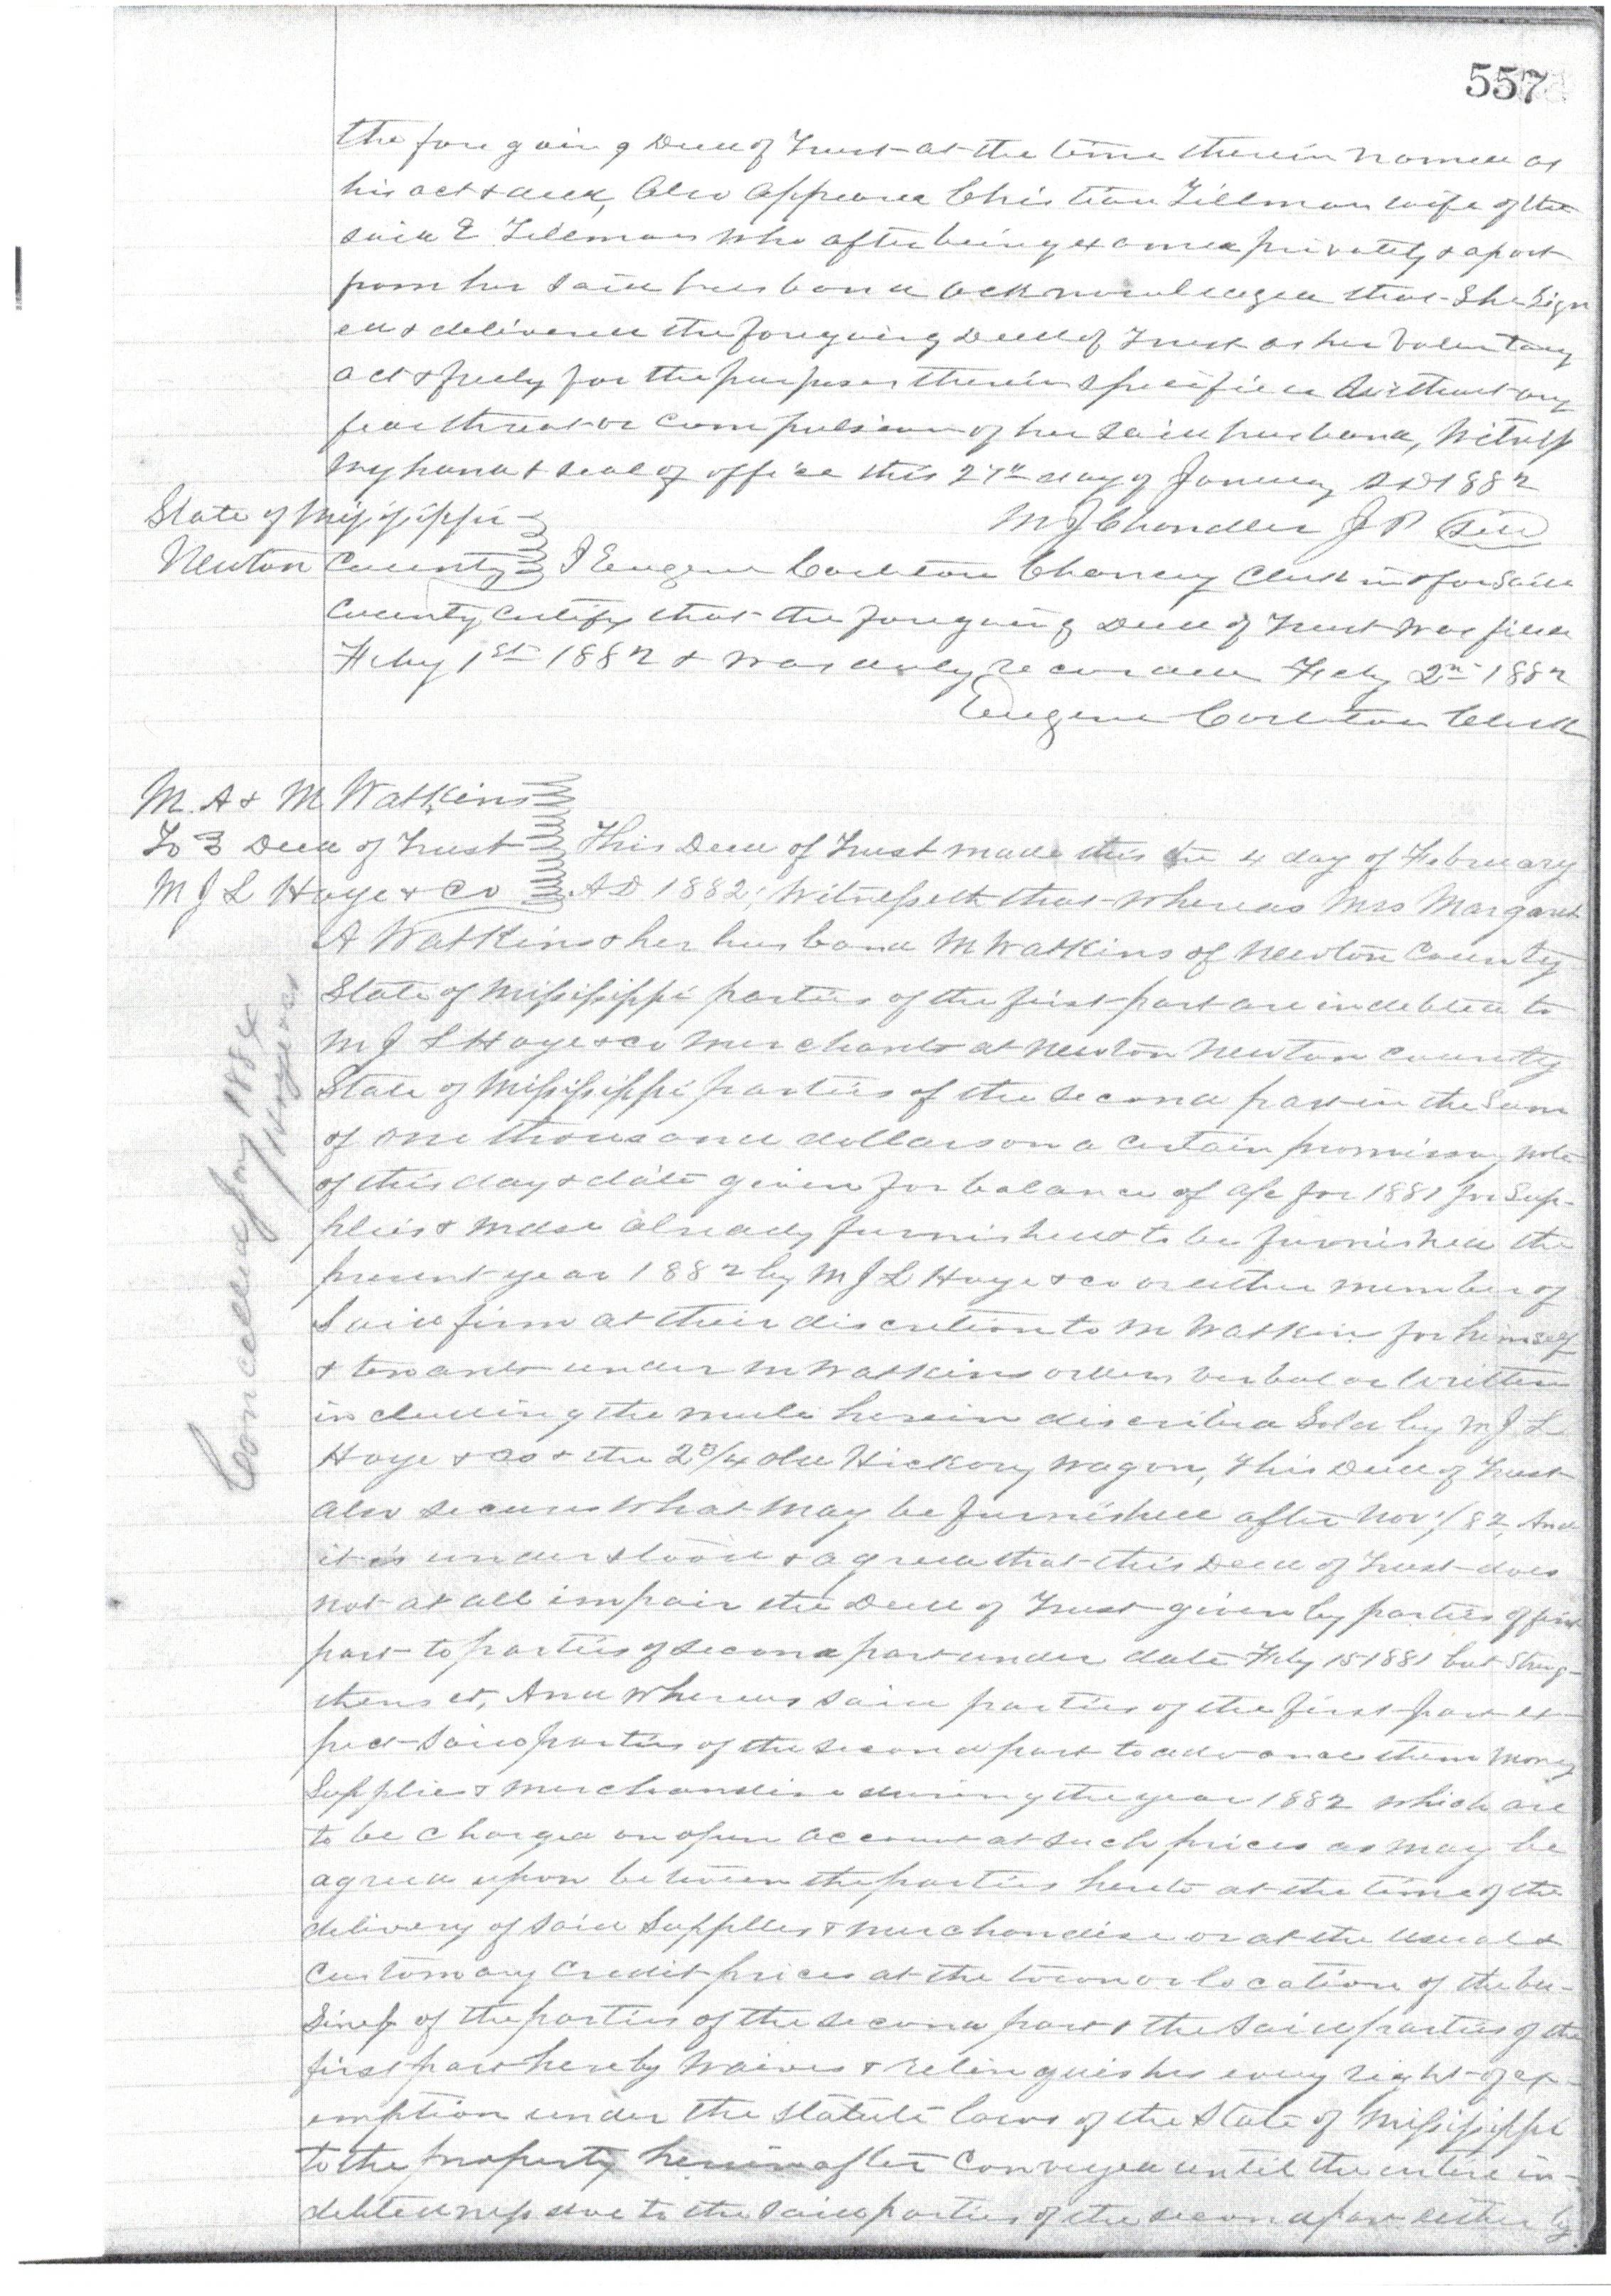 557
the foregoing Deed of Trust at the time therein named as
his act & deed, Also appeared Christian Tillman wife of the
said E Tillman who after being examed privately & apart
from her said husband acknowledged that She Sign
ed & delivered the foregoing Deed of Trust as her Voluntary
act & freely for the purposes therein specified without any
fear threat or compulsion of her said husband, Witness
my hand & seal of office this 27th day of January AD 1882
M J Chandler J P Seal
State of Mississippi
Newton County I Eugene Carleton Chancry Clerk in & for Said
County certify that the foregoing Deed of Trust was filed
Feby 1st 1882 & was duly recorded Feby 2nd 1882
Eugene Carleton Clerk
M. A & M Watkins
To Deed of Trust This Deed of Trust made this the 4 day of February
M J L Hoye & Co AD 1882; Witnesseth that whereas Mrs Margaret
A Watkins & her husband M Watkins of Newton County
State of Mississippi parties of the first part are indebted to
M J L Hoye & co Merchants at Newton Newton County
State of Mississippi parties of the second part in the Sum
of one thousand dollars on a certain promissory note
of this day & date given for balance of a/c for 1881 for Sup-
plies & mdse already furnished & to be furnished the
present year 1882 by M J L Hoye & co or either member of
Said firm at their discretion to M Watkins for himself
& tenants under M Watkins orders verbal or written
including the mule herein discribed Sold by M J L
Hoye & Co & the 2 3/4 old Hickory Wagon, This Deed of Trust
also secures what may be furnished after Nov 1/82, And
it is understood & agreed that this Deed of Trust does
not at all impair the Deed of Trust given by parties of first
part to parties of second part under date Feby 15 1881 but Streng-
thens it, And whereas said parties of the first part ex-
pect said parties of the second part to advance them Money
Supplies & Merchandise during the year 1882 which are
to be charged on open account at such prices as may be
agreed upon between the parties hereto at the time of the
delivery of said Supplies & merchandise or at the usual &
customary credit prices at the town or location of the bu-
siness of the parties of the second part & the said parties of the
first part hereby waives & relinquishes every right of ex-
emption under the Statute laws of the State of Mississippi
to the property hereinafter conveyed until the entire in-
debtedness due to the said parties of the second part either by
Cancelled Jany 1884